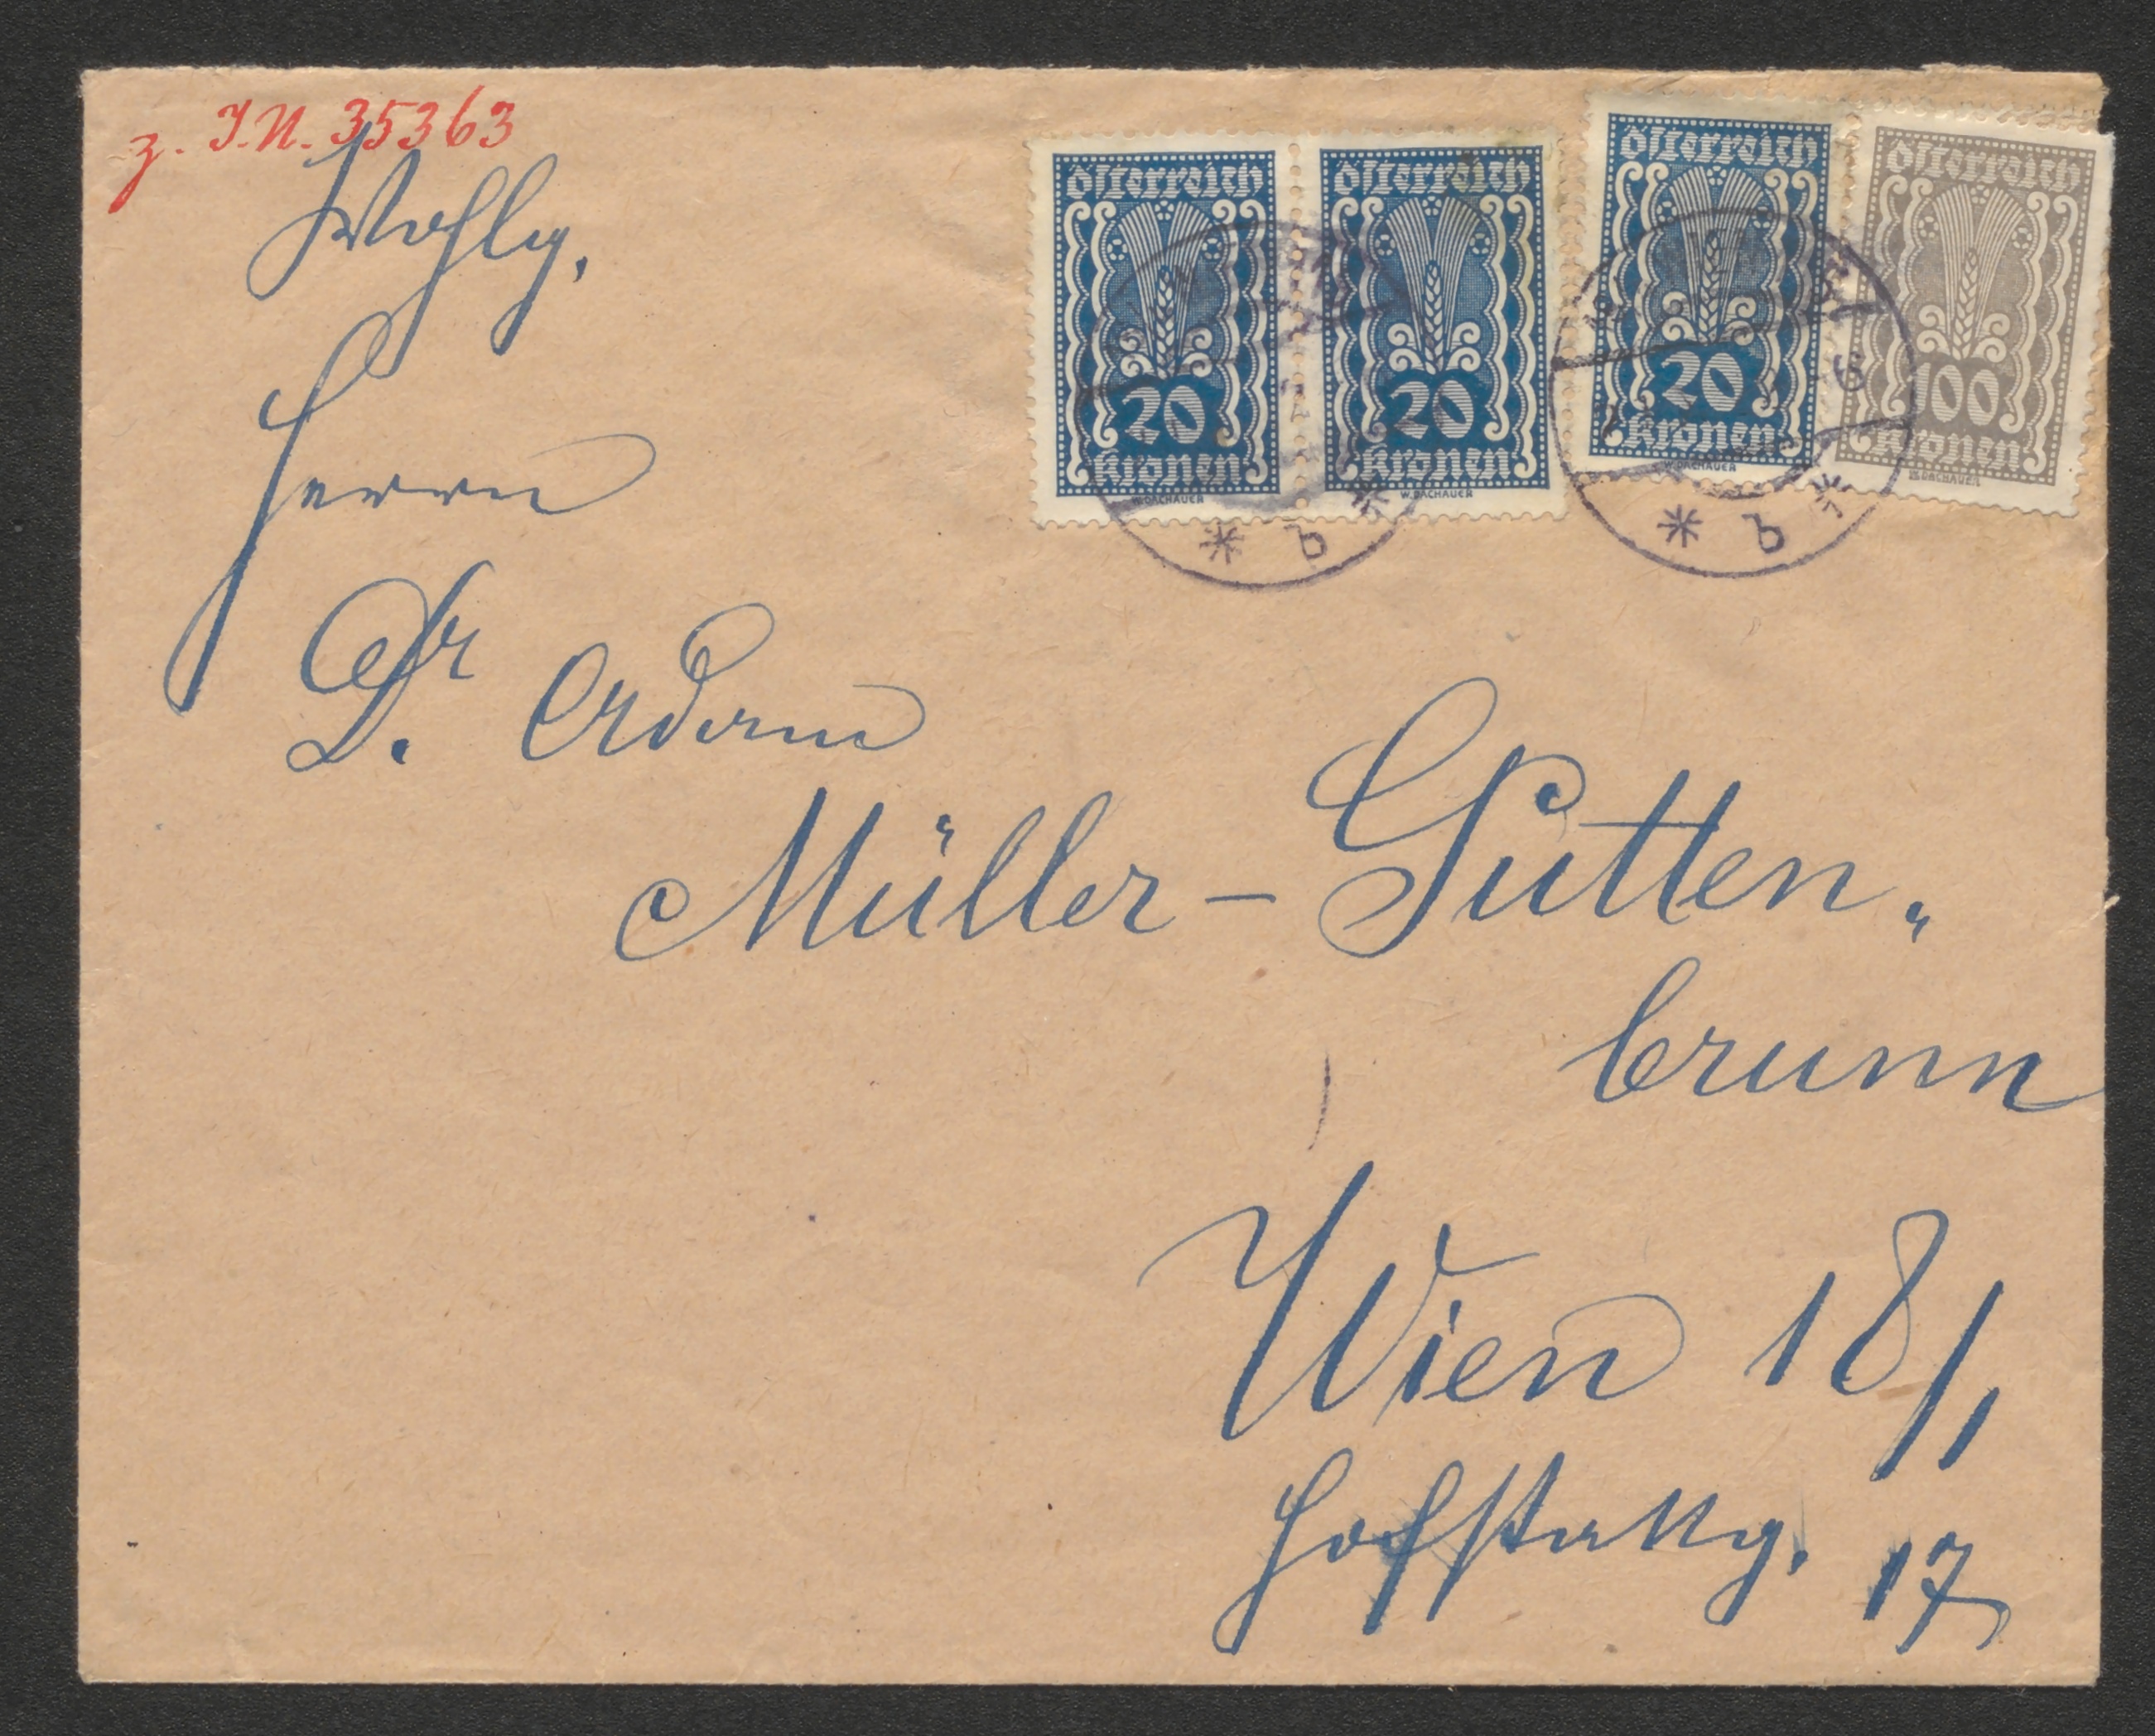 z. I.N. 35363
Wohlg.
Herrn
Dr. Adam
Müller-Gutten„
brunn
Wien 18/1
Hofstattg. 17
Österreich
20
Kronen
W. DACHAUER
Österreich
20
Kronen
W. DACHAUER
Österreich
20
Kronen
W. DACHAUER
Österreich
100
Kronen
W. DACHAUER
* b *
* b *